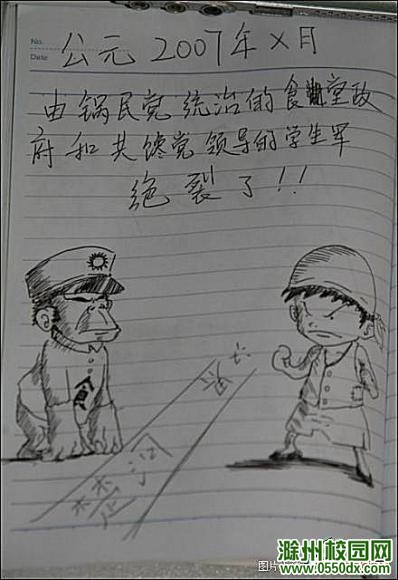 No.
Date
公元 2007年 X月
由锅民党统治的食堂政
府和共馋党领导的学生军
绝裂了!!
食
楚河
图片
滁州校园网
www.0550dx.com